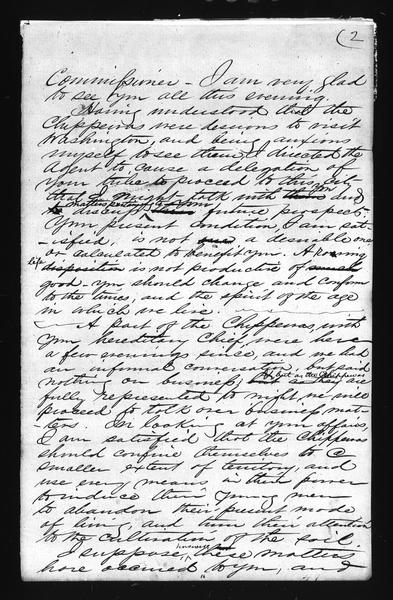 (2
Commissioner - I am very glad
to see you all this evening.
Having understood that the
Chippewas were desirous to visit
Washington, and being anxious
myself to see them, I directed the
Agent to cause a delegation of
your tribe to proceed to this city
that I might talk with you and
matters pertaining to your
discuss future prospect.
Your present condition, I am sat-
isfied, is not a desirable one
or calculated to benefit you. A roving
life
disposition is not productive of much
good. You should change and conform
to the times, and the spirit of the age
in which we live.
A part of the Chippewas, with
your hereditary Chief, were here
a few evenings since, and we had
an informal conversation, but said
nothing on business, but as the Chippewas are
fully represented to night, we will
proceed to talk over business mat-
ters. In looking at your affairs,
I am satisfied that the Chippewas
should confine themselves to a
smaller extent of territory, and
use every means in their power
to induce their young men
to abandon their present mode
of living, and turn their attention
to the cultivation of the soil.
however
I suppose, these matters
have occurred to you, and